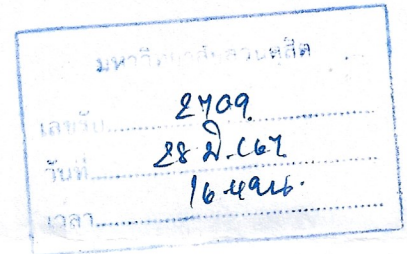 มหาวิทยาลัยสวนดุสิต
เลขรับ 2709
วันที่ 28 มิ.ย. 67
เวลา 16